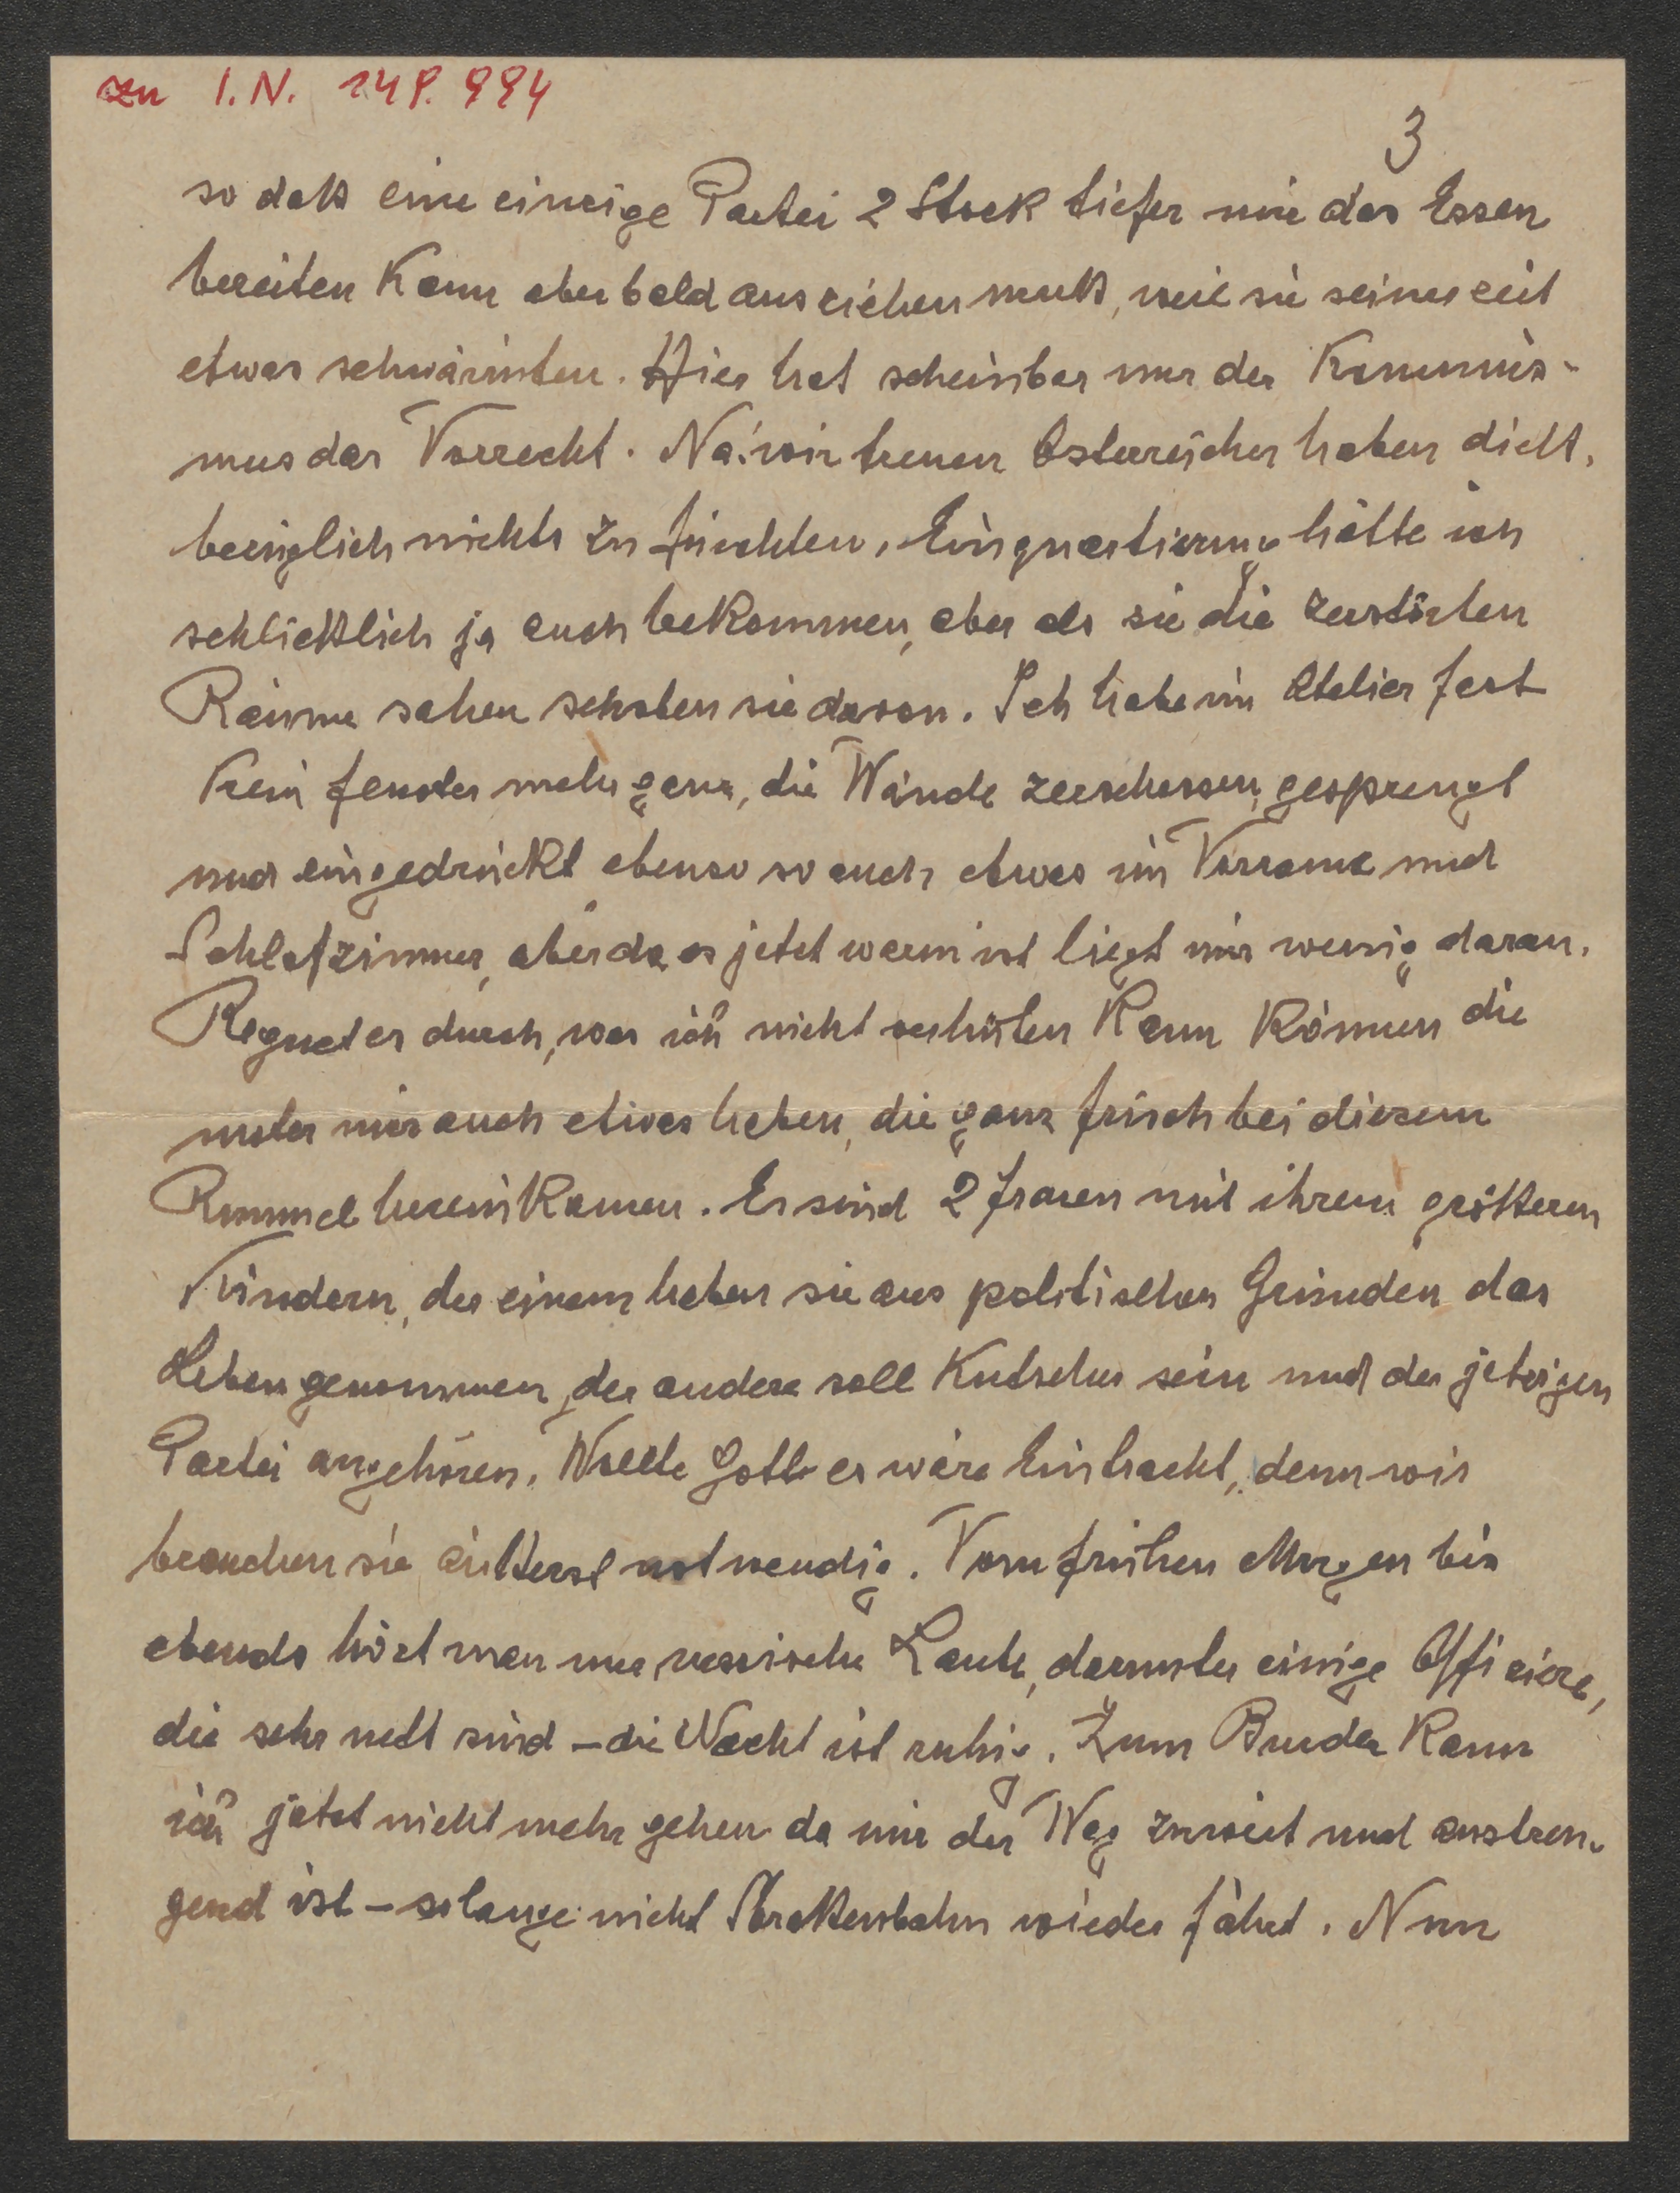 zu I.N. 248.994
3
so daß eine einzige Partei 2 Stock tiefer mir das Essen
bereiten kann aber bald ausziehen muß, weil sie seinerzeit
etwas schwärmten. Hier hat scheinbar nur der Kommunis-
mus das Vorrecht. Na! wir treuen Österreicher haben dies-
bezüglich nichts zu fürchten, Einquartierung hätte ich
schließlich ja auch bekommen, aber als sie die zerstörten
Räume sahen schoben sie davon. Ich habe im Atelier fast
kein Fenster mehr ganz, die Wände zerschossen, gesprengt
und eingedrückt ebenso so auch etwas im Vorraum und
Schlafzimmer, aber da es jetzt warm ist liegt mir wenig daran.
Regnet es durch, was ich nicht verhüten kann können die
unter mir auch etwas haben, die ganz frisch bei diesem
Rummel hereinkamen. Es sind 2 Frauen mit ihren größeren
Kindern, der einen haben sie aus politischen Gründen das
Leben genommen, der andere soll Kutscher sein und der jetzigen
Partei angehören. Wollte Gott es wäre Eintracht, denn wir
brauchen sie äußerst notwendig. Vom frühen Morgen bis
abends hört man nur russische Laute, darunter einige Offiziere,
die sehr nett sind – die Nacht ist ruhig. Zum Bruder kann
ich jetzt nicht mehr gehen da mir der Weg zuweit und anstren-
gend ist – solange nicht Straßenbahn wieder fährt. Nun